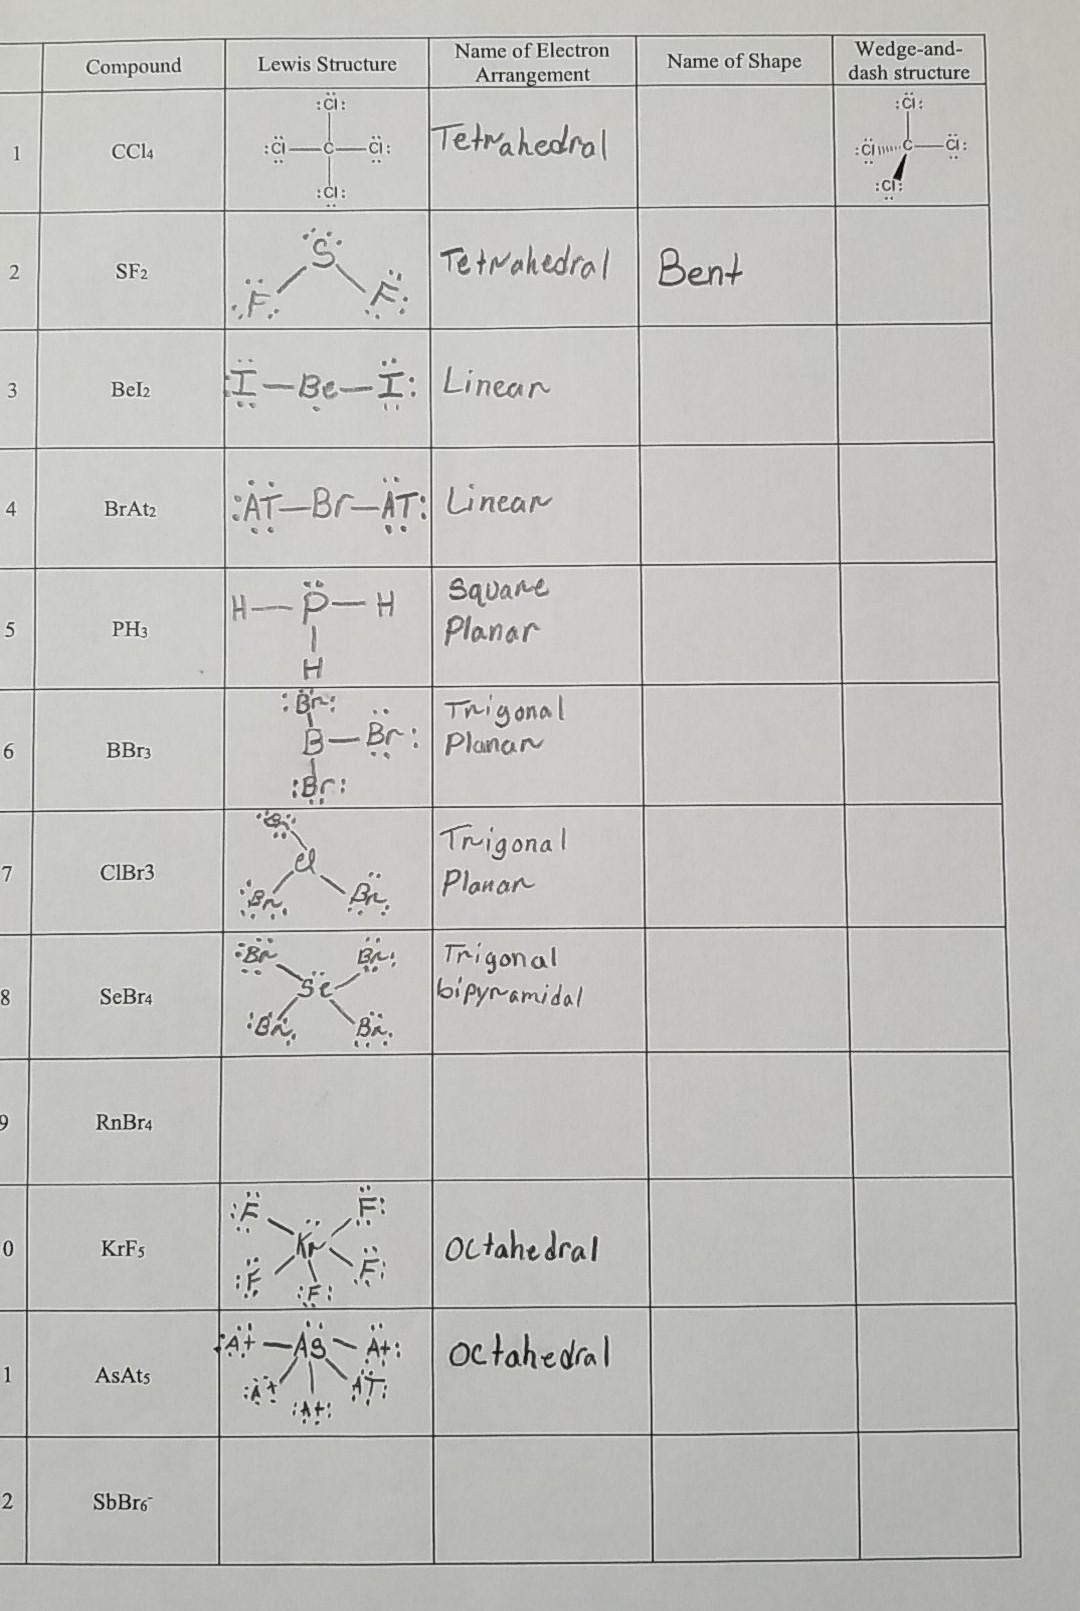 Compound
Lewis Structure
Name of Electron
Arrangement
Name of Shape
Wedge-and-
dash structure
1
CCl4
:Cl:
:Cl—C—Cl:
:Cl:
Tetrahedral
:Cl:
:Cl C—Cl:
:Cl:
2
SF2
S
F F
Tetrahedral
Bent
3
BeI2
:I—Be—I:
Linear
4
BrAt2
:AT—Br—AT:
Linear
5
PH3
H—P—H
H
Square
Planar
6
BBr3
:Br:
B—Br:
:Br:
Trigonal
Planar
7
ClBr3
Br
Cl
Br Br
Trigonal
Planar
8
SeBr4
:Br Br:
Se
:Br Br
Trigonal
bipyramidal
9
RnBr4
0
KrF5
:F F:
Kr
:F :F: F:
Octahedral
1
AsAt5
:At—As—At:
:At :At: AT:
Octahedral
2
SbBr6-